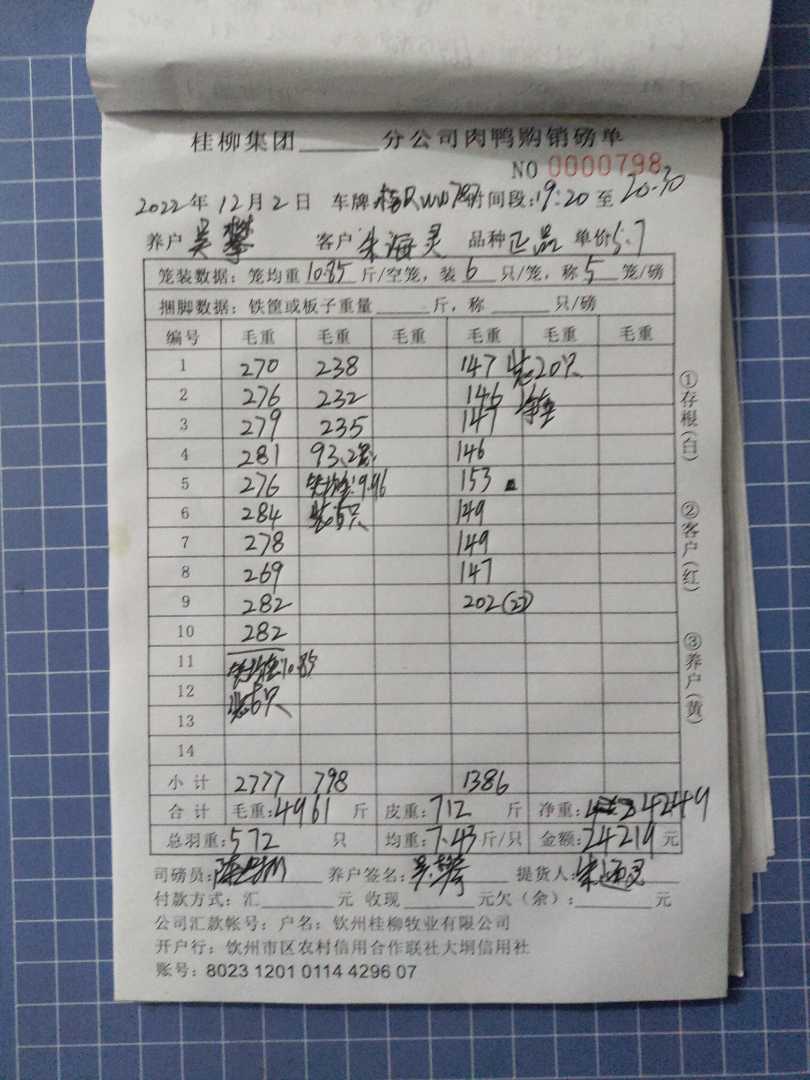 桂柳集团______分公司肉鸭购销磅单
NO 0000798
2022年 12月 2日 车牌 时间段:19:20 至 20:30
养户 吴攀 客户 朱海灵 品种 正品 单价 5.7
笼装数据:笼均重 10.85 斤/空笼,装 6 只/笼,称 5 笼/磅
捆脚数据:铁筐或板子重量______斤,称______只/磅
编号 毛重 毛重 毛重 毛重 毛重 毛重
1 270 238 147 装20只
2 276 232 146
3 279 235 147
4 281 93.2
5 276 9.96 153
6 284 装5只 149
7 278 149
8 269 147
9 282 202 (22)
10 282
11 10.85
12 装6只
13
14
小计 2777 798 1386
合计 毛重:4961 斤 皮重:712 斤 净重:4249
总羽重:572 只 均重:7.43 斤/只 金额:24219 元
司磅员: 养户签名:吴攀 提货人:朱海灵
付款方式:汇______元 收现______元欠(余):______元
公司汇款帐号:户名:钦州桂柳牧业有限公司
开户行:钦州市区农村信用合作联社大垌信用社
账号:8023 1201 0114 4296 07
①存根(白)
②客户(红)
③养户(黄)